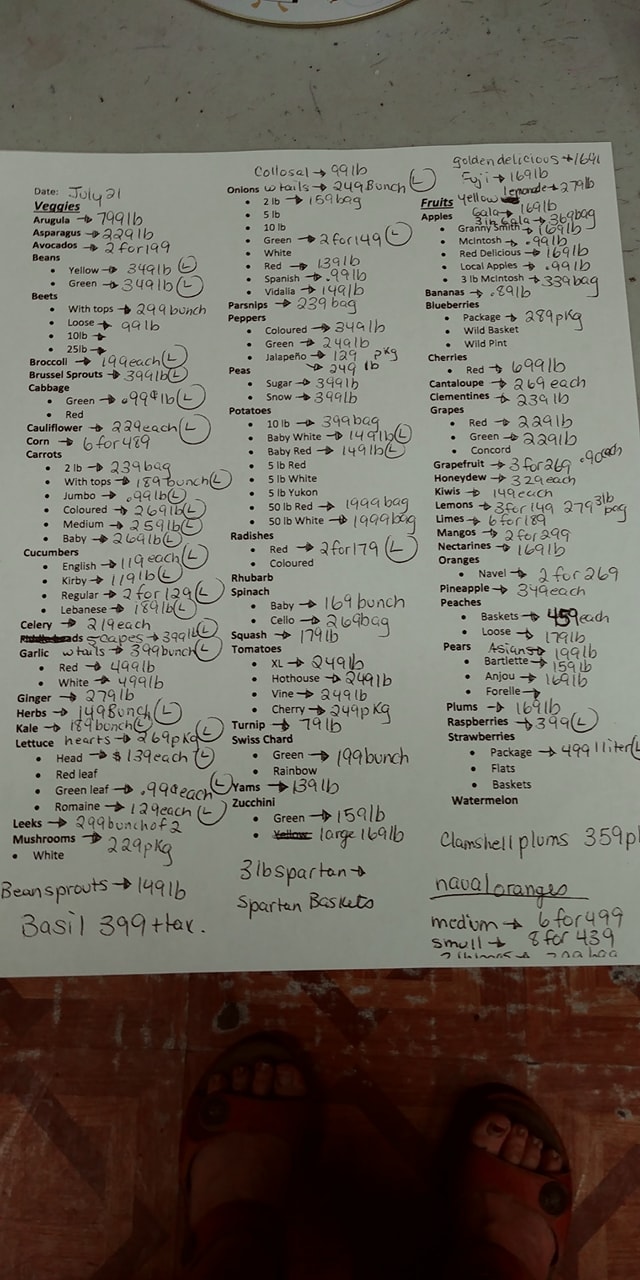 Date: July 21
Veggies
Arugula → 799lb
Asparagus → 229lb
Avocados → 2 for 199
Beans
• Yellow → 349lb (L)
• Green → 349lb (L)
Beets
• With tops → 299bunch
• Loose → 99lb
• 10lb →
• 25lb →
Broccoli → 199each (L)
Brussel Sprouts → 399lb (L)
Cabbage
• Green → .99¢lb (L)
• Red
Cauliflower → 229each (L)
Corn → 6 for 489
Carrots
• 2 lb → 239bag
• With tops → 189bunch (L)
• Jumbo → .99lb (L)
• Coloured → 269lb (L)
• Medium → 259lb (L)
• Baby → 269lb (L)
Cucumbers
• English → 119each (L)
• Kirby → 119lb (L)
• Regular → 2 for 129 (L)
• Lebanese → 189lb (L)
Celery → 219each (L)
scapes → 399lb (L)
Garlic w tails → 399bunch (L)
• Red → 499lb
• White → 499lb
Ginger → 279lb
Herbs → 149Bunch (L)
Kale → 189bunch (L)
Lettuce hearts → 269pkg (L)
• Head → $139each (L)
• Red leaf
• Green leaf → .99¢each (L)
• Romaine → 129each (L)
Leeks → 299bunch of 2
Mushrooms → 229pkg
• White
Beansprouts → 149lb
Basil 399 + tax.
Collosal → 99lb
Onions w tails → 249Bunch (L)
• 2 lb → 159bag
• 5 lb
• 10 lb
• Green → 2 for 149 (L)
• White
• Red → 139lb
• Spanish → .99lb
• Vidalia → 149lb
Parsnips → 239 bag
Peppers
• Coloured → 349lb
• Green → 249lb
• Jalapeño → 129 pkg
→ 249 lb
Peas
• Sugar → 399lb
• Snow → 399lb
Potatoes
• 10 lb → 399bag
• Baby White → 149lb (L)
• Baby Red → 149lb (L)
• 5 lb Red
• 5 lb White
• 5 lb Yukon
• 50 lb Red → 1999bag
• 50 lb White → 1999bag
Radishes
• Red → 2 for 179 (L)
• Coloured
Rhubarb
Spinach
• Baby → 169 bunch
• Cello → 269bag
Squash → 179lb
Tomatoes
• XL → 249lb
• Hothouse → 249lb
• Vine → 249lb
• Cherry → 249pkg
Turnip → 79lb
Swiss Chard
• Green → 199bunch
• Rainbow
Yams → 139lb
Zucchini
• Green → 159lb
• Yellow large 169lb
3lb spartan →
Spartan Baskets
golden delicious → 169lb
Fuji → 169lb
lemonade → 279lb
Fruits Yellow
Gala → 169lb
Apples 3lb Gala → 369bag
• Granny Smith → 169lb
• McIntosh → .99lb
• Red Delicious → 169lb
• Local Apples → .99lb
• 3 lb McIntosh → 339bag
Bananas → .89lb
Blueberries
• Package → 289pkg
• Wild Basket
• Wild Pint
Cherries
• Red → 699lb
Cantaloupe → 269 each
Clementines → 239lb
Grapes
• Red → 229lb
• Green → 229lb
• Concord
Grapefruit → 3 for 269 .90each
Honeydew → 329each
Kiwis → 149each
Lemons → 3 for 149 279 3lb bag
Limes → 6 for 189
Mangos → 2 for 299
Nectarines → 169lb
Oranges
• Navel → 2 for 269
Pineapple → 349each
Peaches
• Baskets → 459each
• Loose → 179lb
Pears Asians → 199lb
• Bartlette → 159lb
• Anjou → 169lb
• Forelle →
Plums → 169lb
Raspberries → 399 (L)
Strawberries
• Package → 499 1 liter (L
• Flats
• Baskets
Watermelon
Clamshell plums 359p
naval oranges
medium → 6 for 499
small → 8 for 439